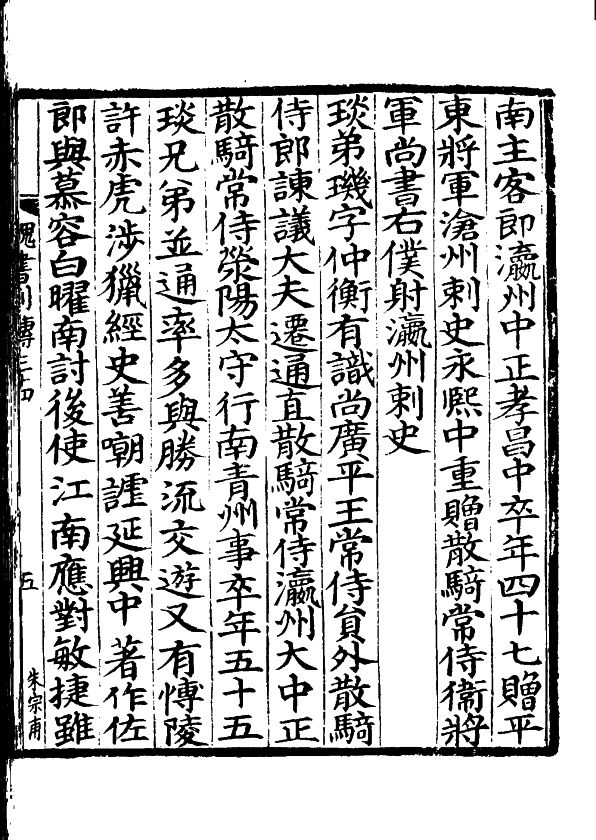 南主客郎瀛州中正孝昌中卒年四十七贈平
東將軍滄州刺史永熙中重贈散騎常侍衞將
軍尚書右僕射瀛州刺史
琰弟璣字仲衡有識尚廣平王常侍貟外散騎
侍郎諫議大夫遷通直散騎常侍瀛州大中正
散騎常侍滎陽太守行南青州事卒年五十五
琰兄弟並通率多與勝流交遊又有愽陵
許赤虎涉獵經史善嘲謔延興中著作佐
郎與慕容白曜南討後使江南應對敏捷雖
魏書列傳三十四
五
朱宗甫